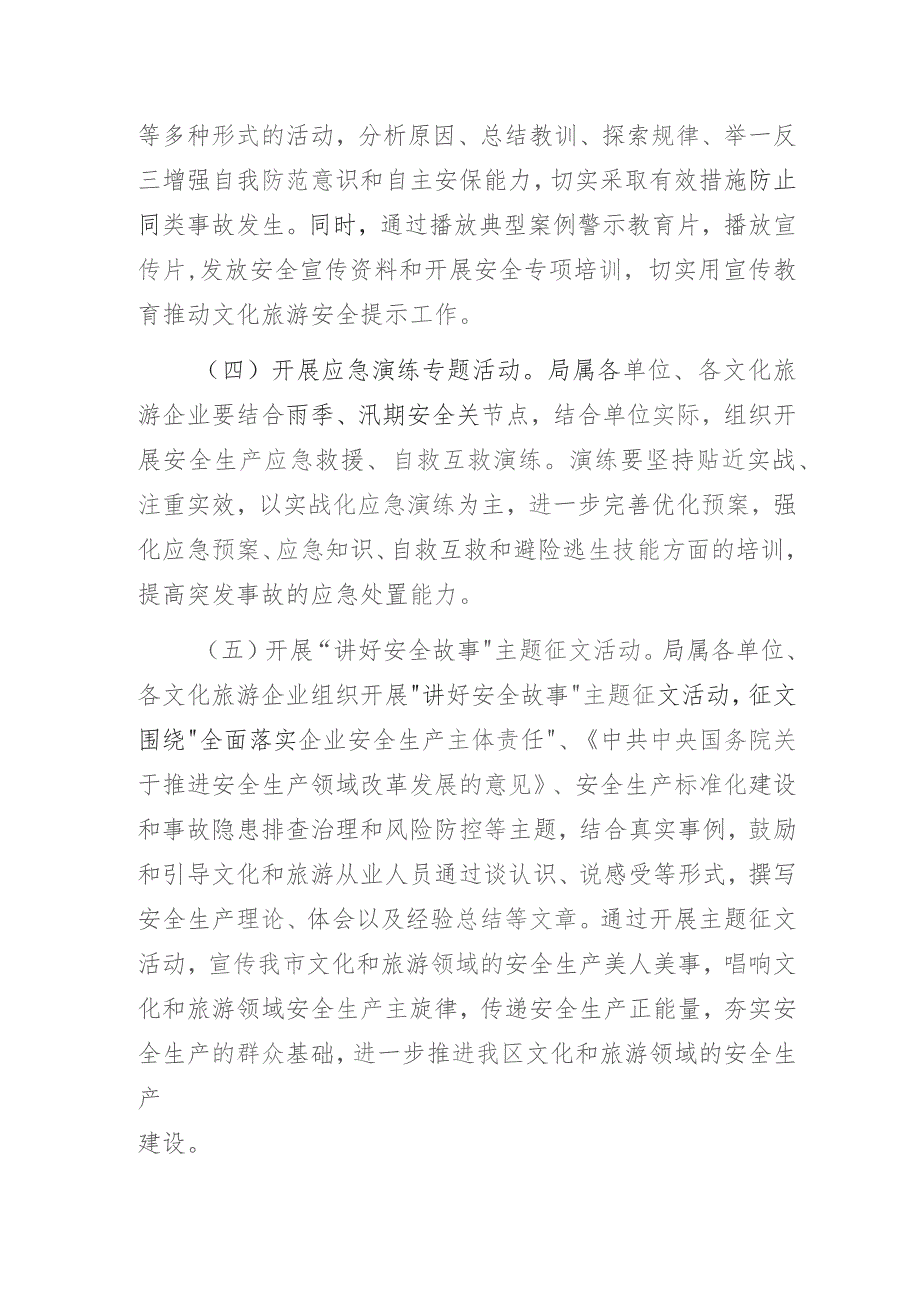 等多种形式的活动，分析原因、总结教训、探索规律、举一反
三增强自我防范意识和自主安保能力，切实采取有效措施防止
同类事故发生。同时，通过播放典型案例警示教育片，播放宣
传片,发放安全宣传资料和开展安全专项培训，切实用宣传教
育推动文化旅游安全提示工作。
（四）开展应急演练专题活动。局属各单位、各文化旅
游企业要结合雨季、汛期安全关节点，结合单位实际，组织开
展安全生产应急救援、自救互救演练。演练要坚持贴近实战、
注重实效，以实战化应急演练为主，进一步完善优化预案，强
化应急预案、应急知识、自救互救和避险逃生技能方面的培训，
提高突发事故的应急处置能力。
（五）开展“讲好安全故事"主题征文活动。局属各单位、
各文化旅游企业组织开展"讲好安全故事"主题征文活动，征文
围绕"全面落实企业安全生产主体责任"、《中共中央国务院关
于推进安全生产领域改革发展的意见》、安全生产标准化建设
和事故隐患排查治理和风险防控等主题，结合真实事例，鼓励
和引导文化和旅游从业人员通过谈认识、说感受等形式，撰写
安全生产理论、体会以及经验总结等文章。通过开展主题征文
活动，宣传我市文化和旅游领域的安全生产美人美事，唱响文
化和旅游领域安全生产主旋律，传递安全生产正能量，夯实安
全生产的群众基础，进一步推进我区文化和旅游领域的安全生
产
建设。